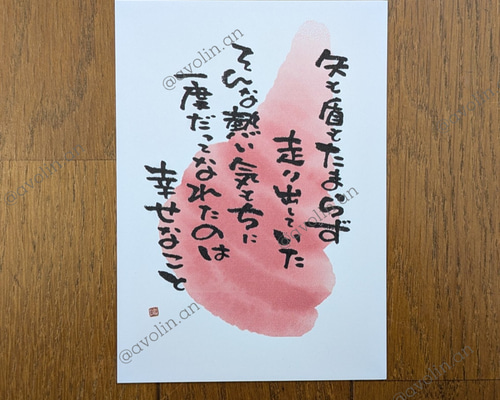 矢も盾もたまらず
走り出していた
そんな熱い気もちに
一度だってなれたのは
幸せなこと
@avolin.an
@avolin.an
@avolin.an
@avolin.an
@avolin.an